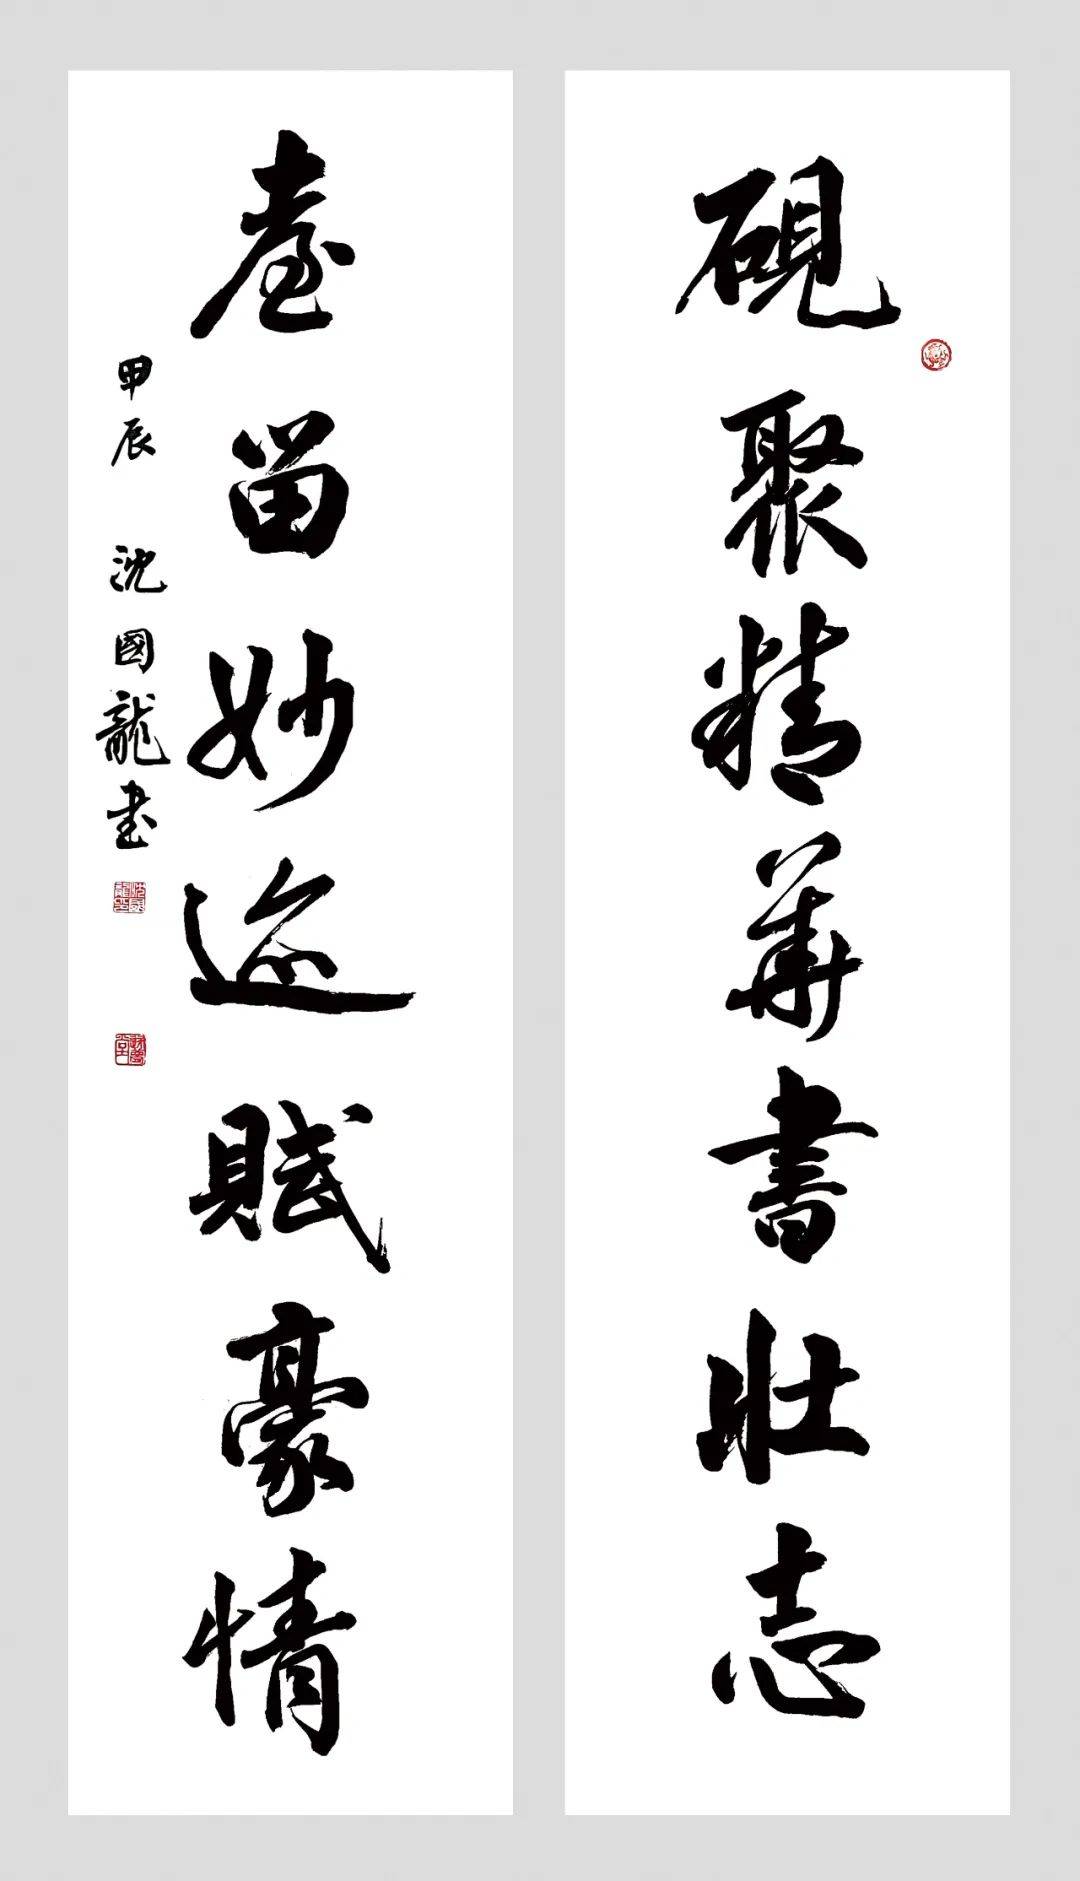 硯聚精華書壯志
臺留妙迹賦豪情
甲辰 沈國龍书